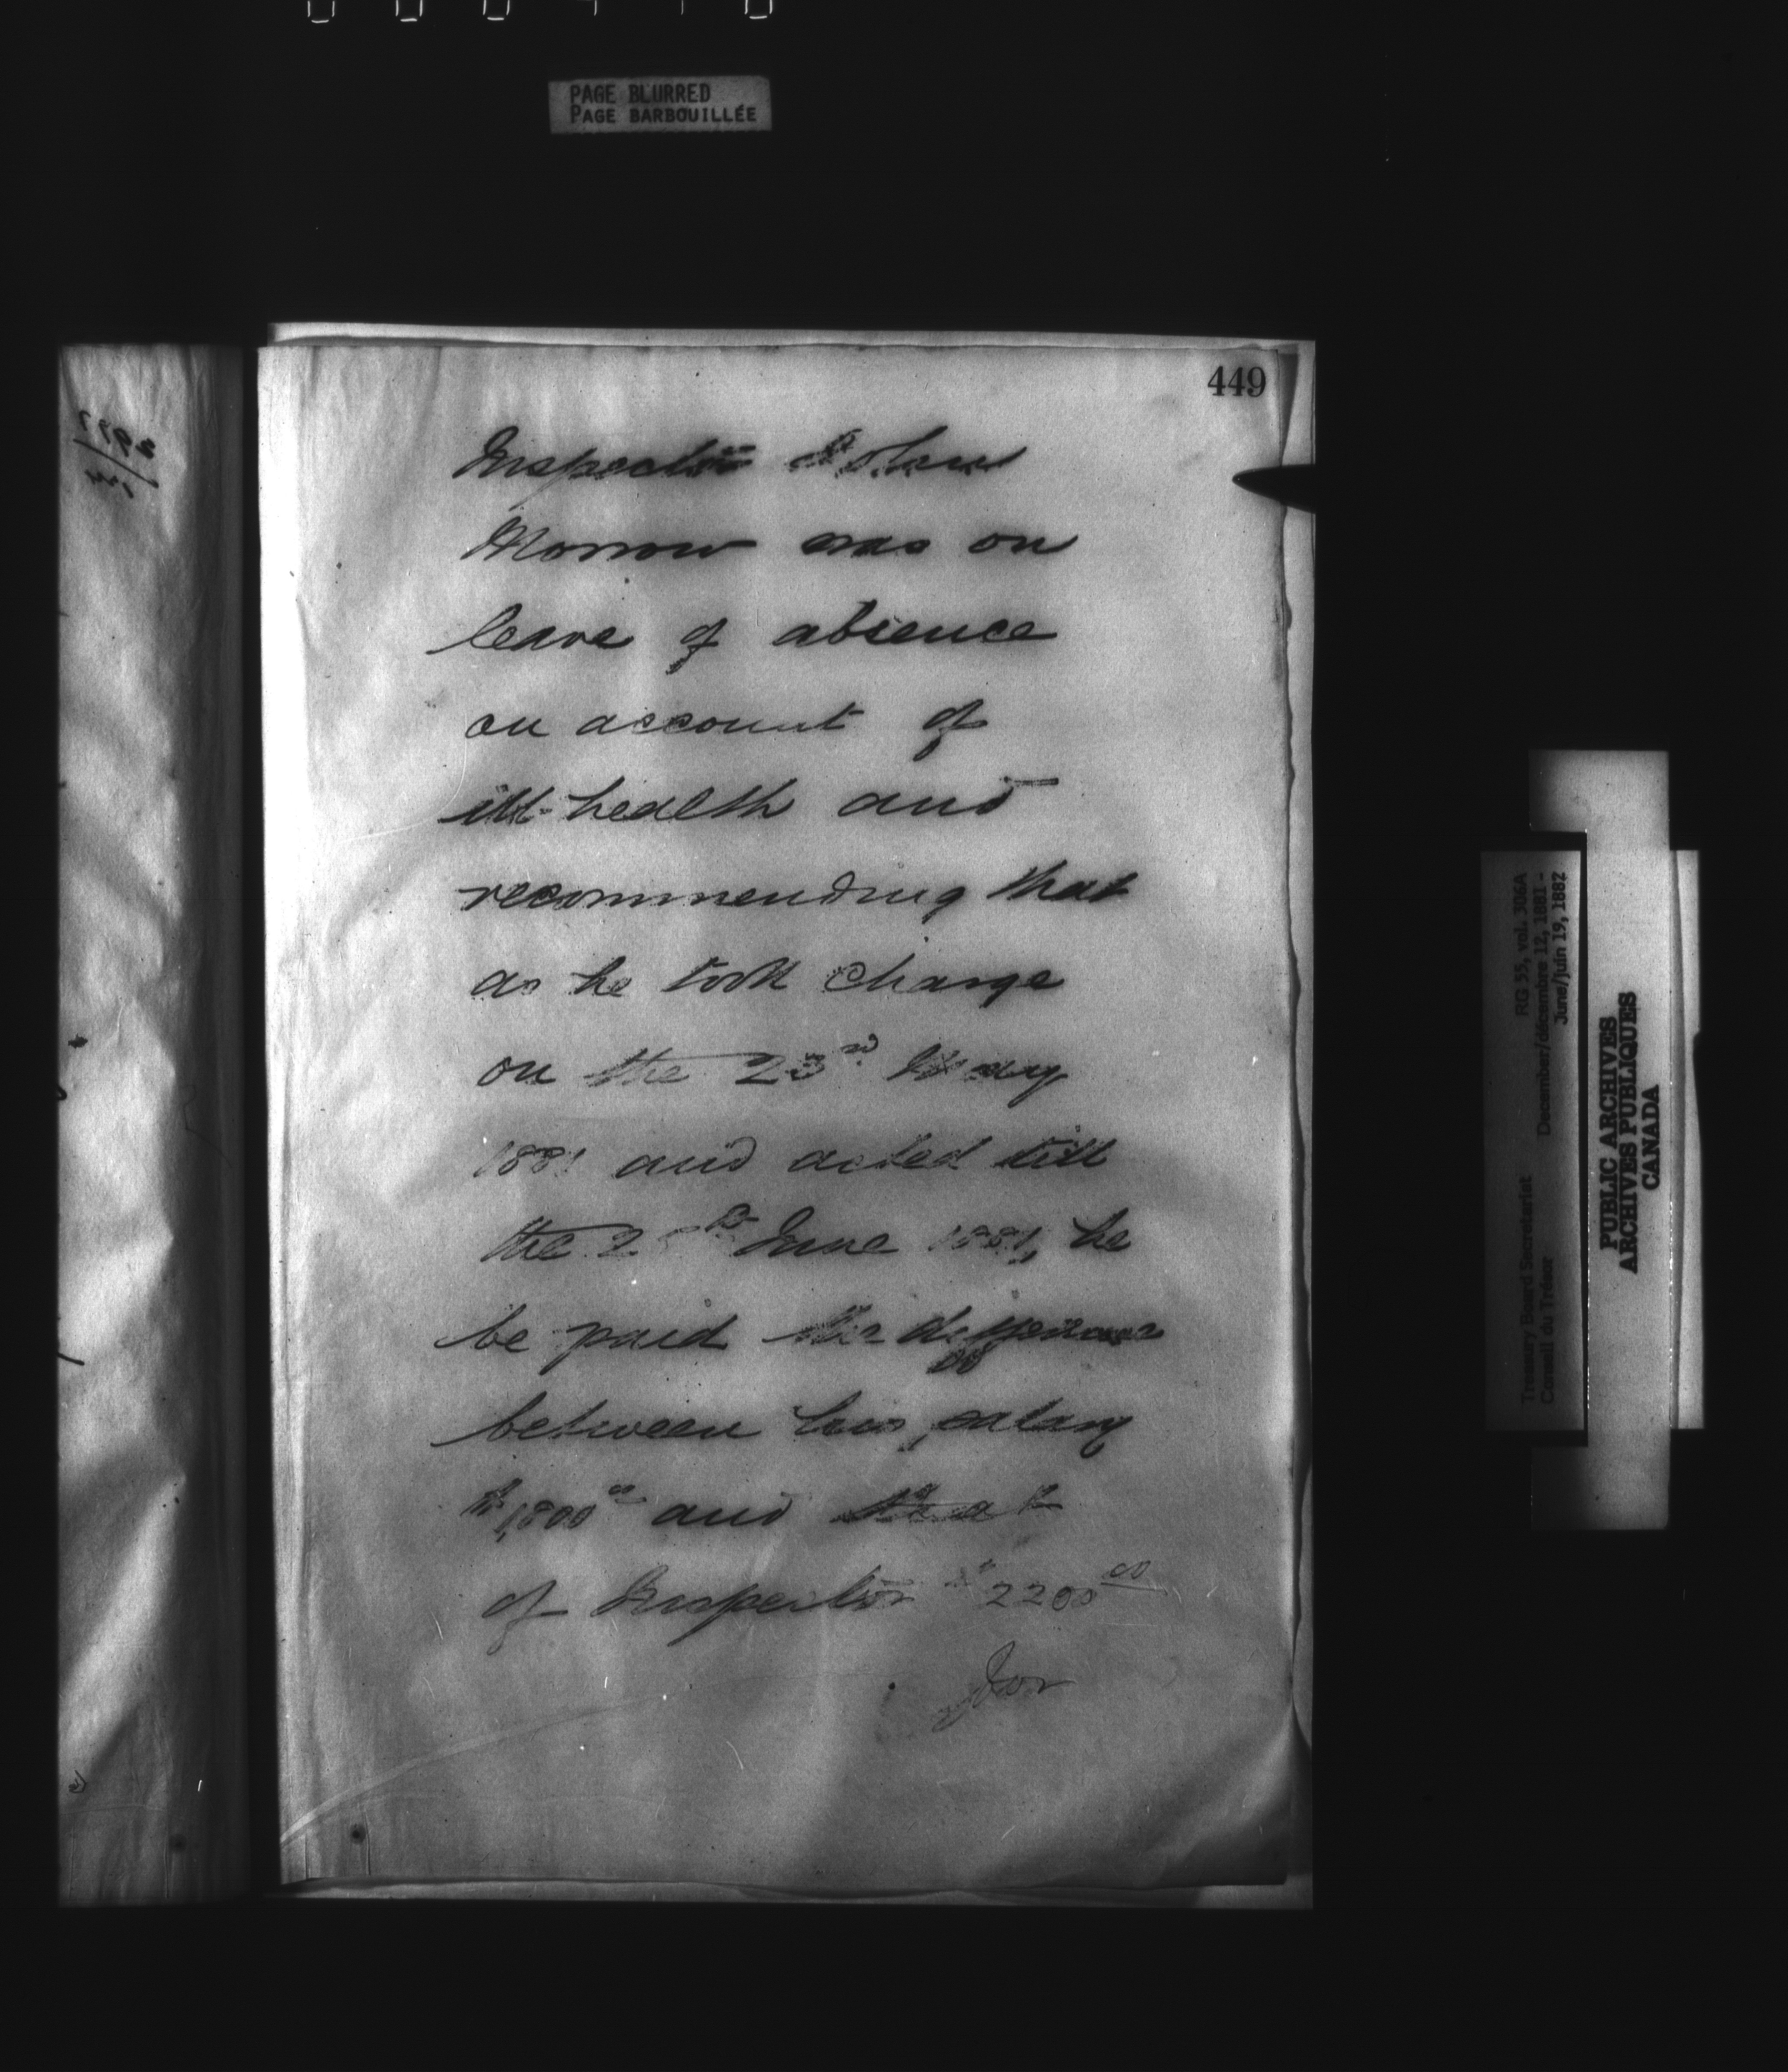 PAGE BLURRED
PAGE BARBOUILLÉE
449
Inspector John
Morrow was on
leave of absence
on account of
ill-health and
recommending that
as he took charge
on the 23rd May
1881 and acted till
the June 1881, he
be paid the difference
between his salary
$1,800 00 and that
of Inspector $2200 00
for
RG 55, vol. 306A
Treasury Board Secretariat December/décembre 12, 1881 -
Conseil du Trésor June/juin 19, 1882
PUBLIC ARCHIVES
ARCHIVES PUBLIQUES
CANADA